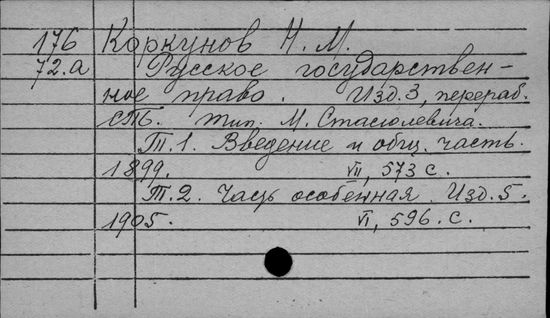 176 Коркунов Н. М.
72.а Русское государствен-
ное право. Изд. 3, перераб.
СПб. Тип. М. Стасюлевича.
Т. 1. Введение и общ. часть.
1899. VII, 573 с.
Т. 2. Часть особенная. Изд. 5.
1905. VI, 596. с.